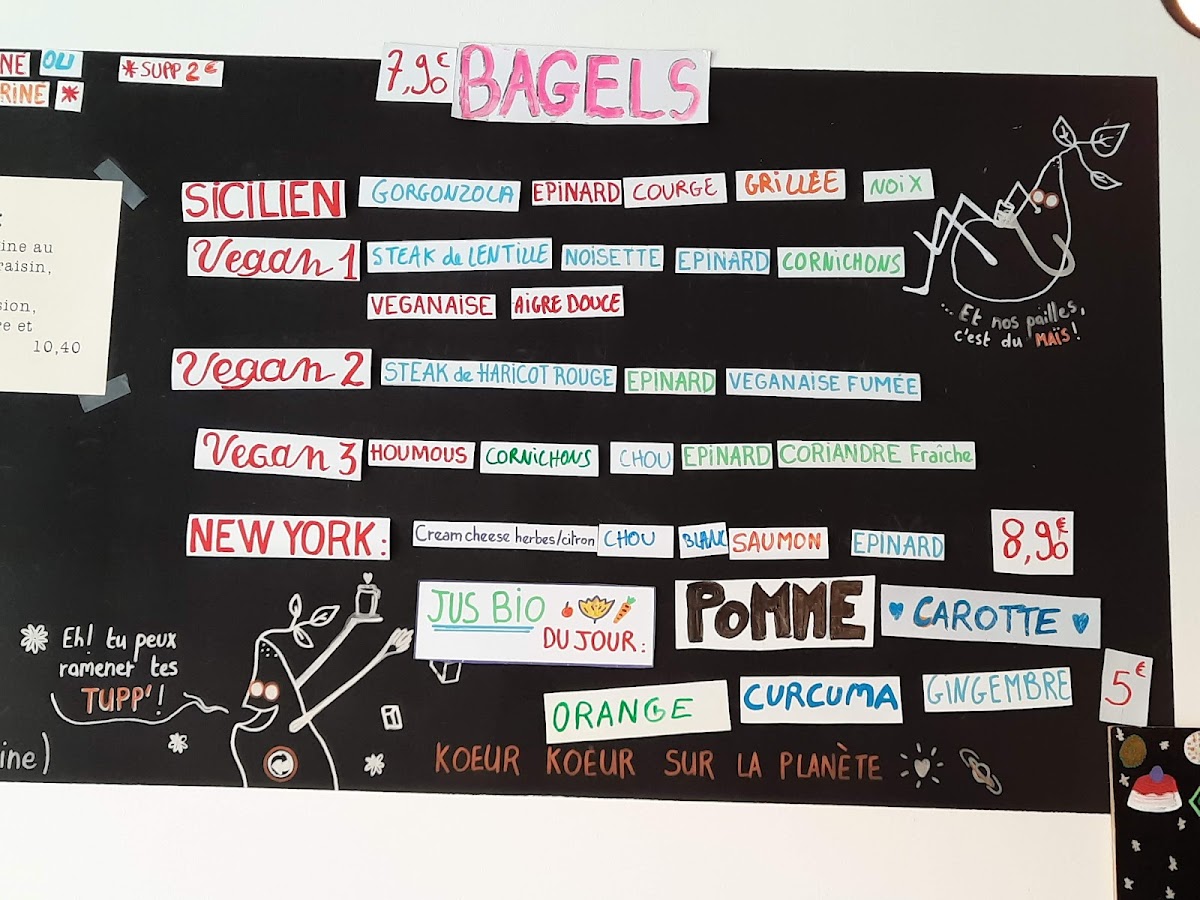 OU
*SUPP 2€
RINÉ *
7,90€ BAGELS
SiCiLiEN GORGONZOLA EPINARD COURGE GRiLLÉE NOiX
Vegan 1 STEAK de LENTILLE NOiSETTE EPINARD CORNiCHONS
VEGANAISE AiGRE DOUCE
Vegan 2 STEAK de HARICOT ROUGE EPINARD VEGANAISE FUMÉE
Vegan 3 HOUMOUS CORNiCHONS CHOU EPINARD CORIANDRE Fraîche
NEW YORK: Cream cheese herbes/citron CHOU BLANC SAUMON EPINARD 8,90€
JUS BiO
DU JOUR: POMME CAROTTE
ORANGE CURCUMA GINGEMBRE 5€
KOEUR KOEUR SUR LA PLANÈTE
... Et nos pailles,
c'est du MAÏS!
Eh! tu peux
ramener tes
TUPP'!
ine au
raisin,
sion,
re et
10,40
ine)